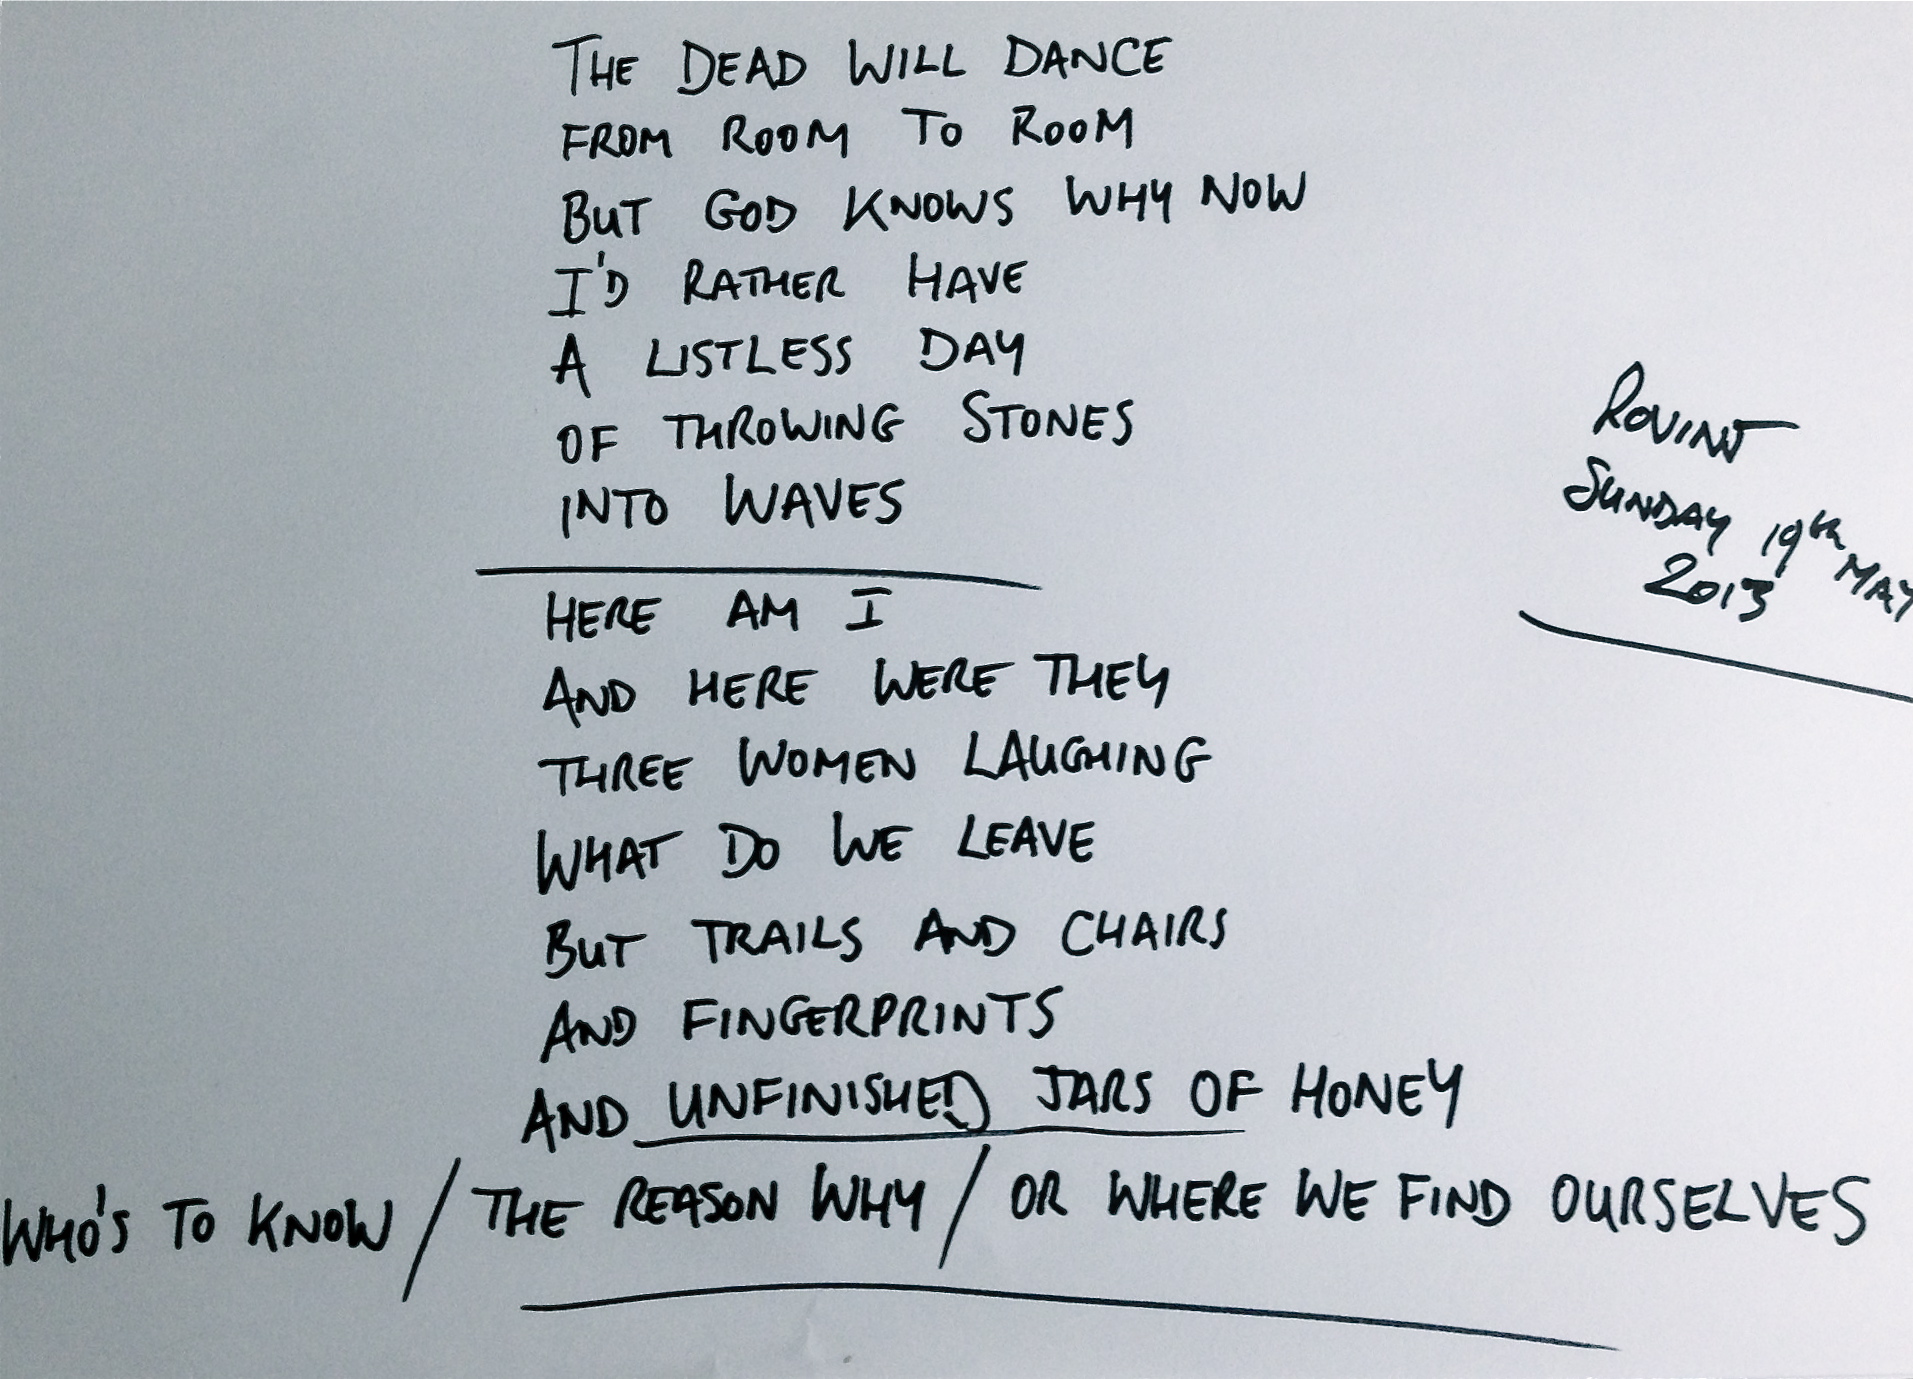 THE DEAD WILL DANCE
FROM ROOM TO ROOM
BUT GOD KNOWS WHY NOW
I'D RATHER HAVE
A LISTLESS DAY
OF THROWING STONES
INTO WAVES
HERE AM I
AND HERE WERE THEY
THREE WOMEN LAUGHING
WHAT DO WE LEAVE
BUT TRAILS AND CHAIRS
AND FINGERPRINTS
AND UNFINISHED JARS OF HONEY
WHO'S TO KNOW / THE REASON WHY / OR WHERE WE FIND OURSELVES
SUNDAY 19th MAY
2013